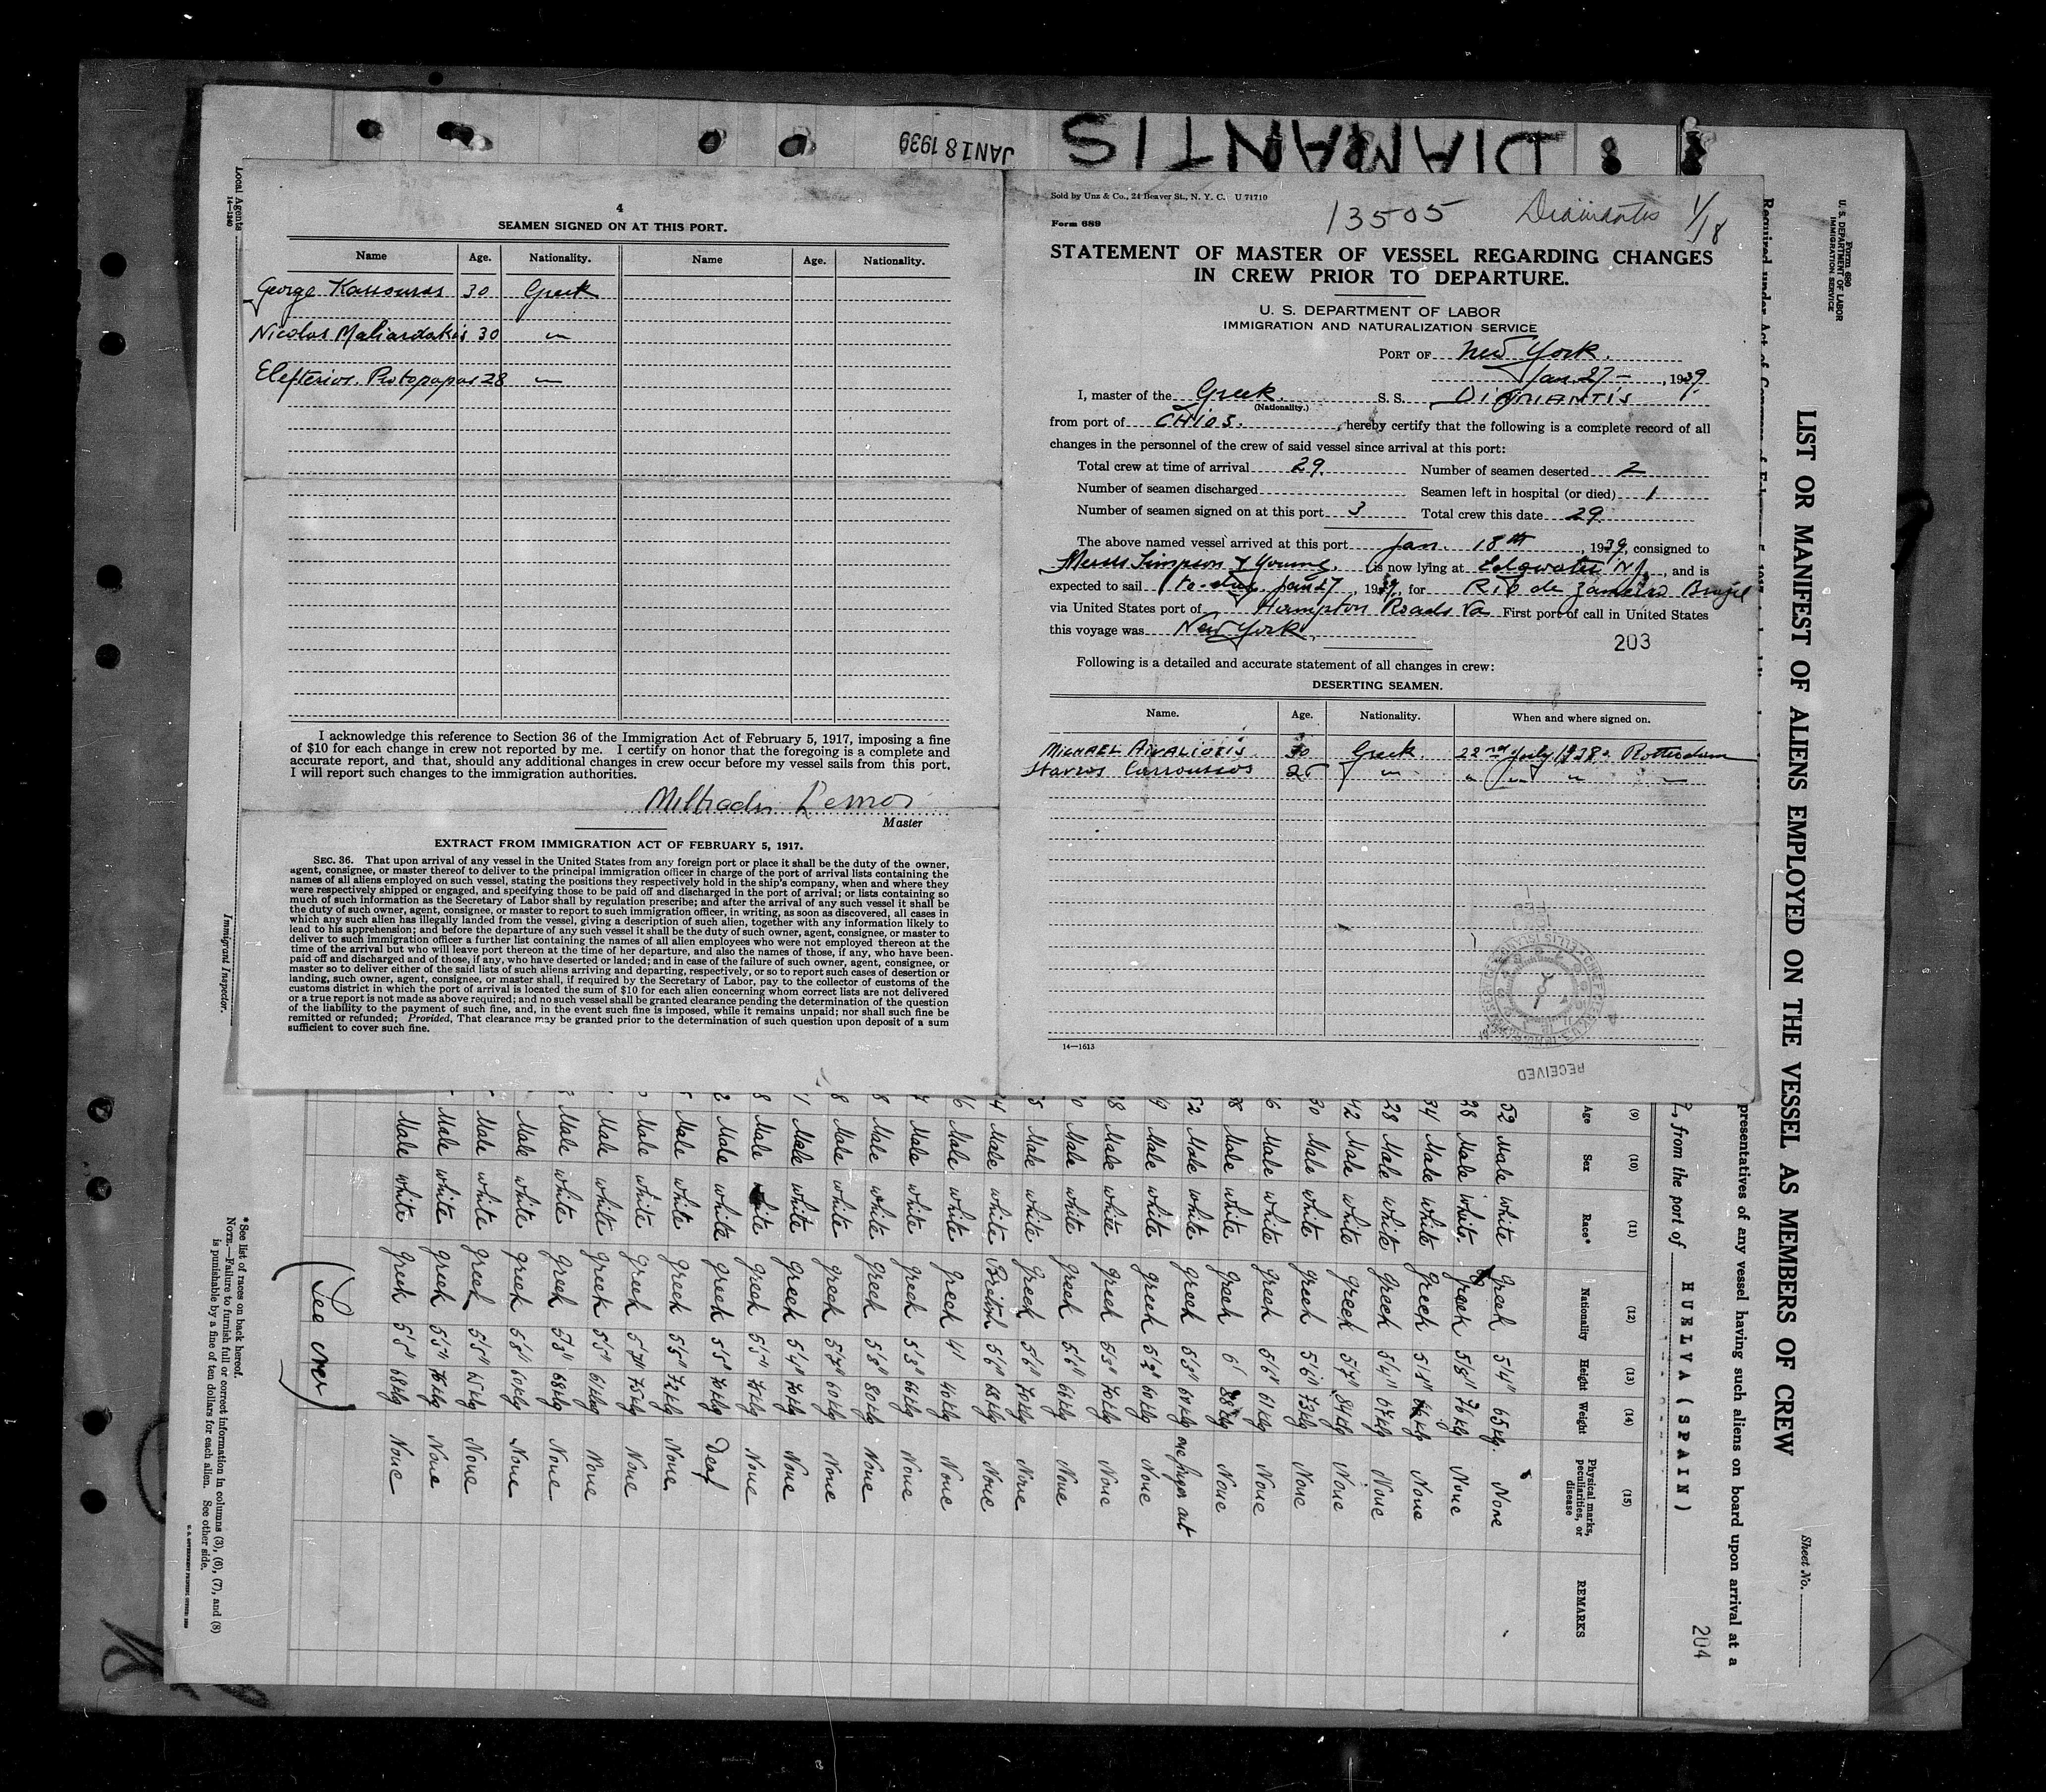 DIAMANTIS
JAN 18 1939
Local Agents
14—1240
Immigrant Inspector.
4
SEAMEN SIGNED ON AT THIS PORT.
Name Age. Nationality. Name Age. Nationality.
George 30 Greek
Nicolas Maliardakis 30 "
Elefterios Protopapas 28 "
I acknowledge this reference to Section 36 of the Immigration Act of February 5, 1917, imposing a fine
of $10 for each change in crew not reported by me. I certify on honor that the foregoing is a complete and
accurate report, and that, should any additional changes in crew occur before my vessel sails from this port,
I will report such changes to the immigration authorities.
Miltiadis Lemos
Master
EXTRACT FROM IMMIGRATION ACT OF FEBRUARY 5, 1917.
SEC. 36. That upon arrival of any vessel in the United States from any foreign port or place it shall be the duty of the owner,
agent, consignee, or master thereof to deliver to the principal immigration officer in charge of the port of arrival lists containing the
names of all aliens employed on such vessel, stating the positions they respectively hold in the ship's company, when and where they
were respectively shipped or engaged, and specifying those to be paid off and discharged in the port of arrival; or lists containing so
much of such information as the Secretary of Labor shall by regulation prescribe; and after the arrival of any such vessel it shall be
the duty of such owner, agent, consignee, or master to report to such immigration officer, in writing, as soon as discovered, all cases in
which any such alien has illegally landed from the vessel, giving a description of such alien, together with any information likely to
lead to his apprehension; and before the departure of any such vessel it shall be the duty of such owner, agent, consignee, or master to
deliver to such immigration officer a further list containing the names of all alien employees who were not employed thereon at the
time of the arrival but who will leave port thereon at the time of her departure, and also the names of those, if any, who have been
paid off and discharged and of those, if any, who have deserted or landed; and in case of the failure of such owner, agent, consignee, or
master so to deliver either of the said lists of such aliens arriving and departing, respectively, or so to report such cases of desertion or
landing, such owner, agent, consignee, or master shall, if required by the Secretary of Labor, pay to the collector of customs of the
customs district in which the port of arrival is located the sum of $10 for each alien concerning whom correct lists are not delivered
or a true report is not made as above required; and no such vessel shall be granted clearance pending the determination of the question
of the liability to the payment of such fine, and, in the event such fine is imposed, while it remains unpaid; nor shall such fine be
remitted or refunded; Provided, That clearance may be granted prior to the determination of such question upon deposit of a sum
sufficient to cover such fine.
Sold by Unz & Co., 24 Beaver St., N. Y. C. U 71710
Form 689
13505 Diamantis 1/18
STATEMENT OF MASTER OF VESSEL REGARDING CHANGES
IN CREW PRIOR TO DEPARTURE.
U. S. DEPARTMENT OF LABOR
IMMIGRATION AND NATURALIZATION SERVICE
PORT OF New York.
Jan. 27 — , 1939.
I, master of the Greek. S. S. DIAMANTIS
(Nationality.)
from port of CHIOS. , hereby certify that the following is a complete record of all
changes in the personnel of the crew of said vessel since arrival at this port:
Total crew at time of arrival 29. Number of seamen deserted 2
Number of seamen discharged Seamen left in hospital (or died) 1
Number of seamen signed on at this port 3 Total crew this date 29.
The above named vessel arrived at this port Jan. 18th , 1939, consigned to
Messrs Simpson & Young. is now lying at Edgwater NJ , and is
expected to sail to-day Jan 27 , 1939, for Rio de Janeiro Brazil
via United States port of Hampton Roads Va First port of call in United States
this voyage was New York.
203
Following is a detailed and accurate statement of all changes in crew:
DESERTING SEAMEN.
Name. Age. Nationality. When and where signed on.
MICHAEL AIVALIOTIS 30 Greek. 22nd July 1938 Rotterdam
Stavros Carroussos 26 " " " " "
14—1613
RECEIVED
Form 689
U. S. DEPARTMENT OF LABOR
IMMIGRATION SERVICE
LIST OR MANIFEST OF ALIENS EMPLOYED ON THE VESSEL AS MEMBERS OF CREW
Sheet No.
Required under Act of Congress of
presentatives of any vessel having such aliens on board upon arrival at a
, from the port of HUELVA (SPAIN)
204
(9) (10) (11) (12) (13) (14) (15)
Age Sex Race* Nationality Height Weight Physical marks, peculiarities, or disease REMARKS
52 Male white Greek 5'4" 65 kg. None
28 Male white. Greek 5'8" 76 kg None
34 Male white Greek None
28 Male white Greek 5'4" 67 kg None
42 Male white Greek 5'7" 84 kg None
30 Male white Greek 5'6" 73 kg None
6 Male white Greek 5'6" 61 kg None
8 Male white Greek 6' 88 kg None
52 Male white Greek 5'3" 60 kg one finger cut
9 Male white Greek 5'2" 60 kg None
8 Male white Greek 5'3" 70 kg None
0 Male white Greek 5'6" 66 kg None
5 Male white Greek 5'6" 70 kg None
4 Male white British 5'6" 68 kg None
6 Male white Greek 4' 40 kg None
Male white Greek 5'3" 66 kg None
8 Male white Greek 5'3" 80 kg None
8 Male white Greek 5'7" 60 kg None
Male white Greek 5'4" 70 kg None
8 Male white Greek 5'5" 75 kg None
2 Male white Greek 5'5" 70 kg Deaf
Male white Greek 5'5" 72 kg None
Male white Greek 5'7" 75 kg None
Male white Greek 5'5" 61 kg None
Male white Greek 5'3" 68 kg None
Male white Greek 5'8" 60 kg None
Male white Greek 5'5" 65 kg None
Male white Greek 5'5" 76 kg None
Male white Greek 5'5" 68 kg None
(See over)
*See list of races on back hereof.
NOTE.—Failure to furnish full or correct information in columns (3), (6), (7), and (8)
is punishable by a fine of ten dollars for each alien. See other side.